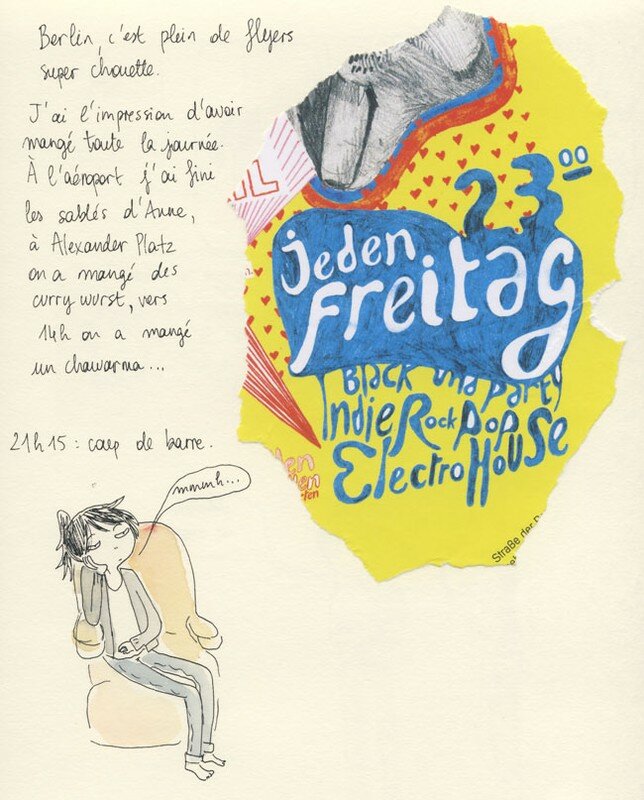 Berlin, c'est plein de flyers
super chouette.
J'ai l'impression d'avoir
mangé toute la journée.
À l'aéroport j'ai fini
les sablés d'Anne,
à Alexander Platz
on a mangé des
curry wurst, vers
14h on a mangé
un chawarma...
21h15 : coup de barre.
mmmh...
23 00
jeden
freitag
Black
party
Indie Rock Pop
Electro House
Straße der